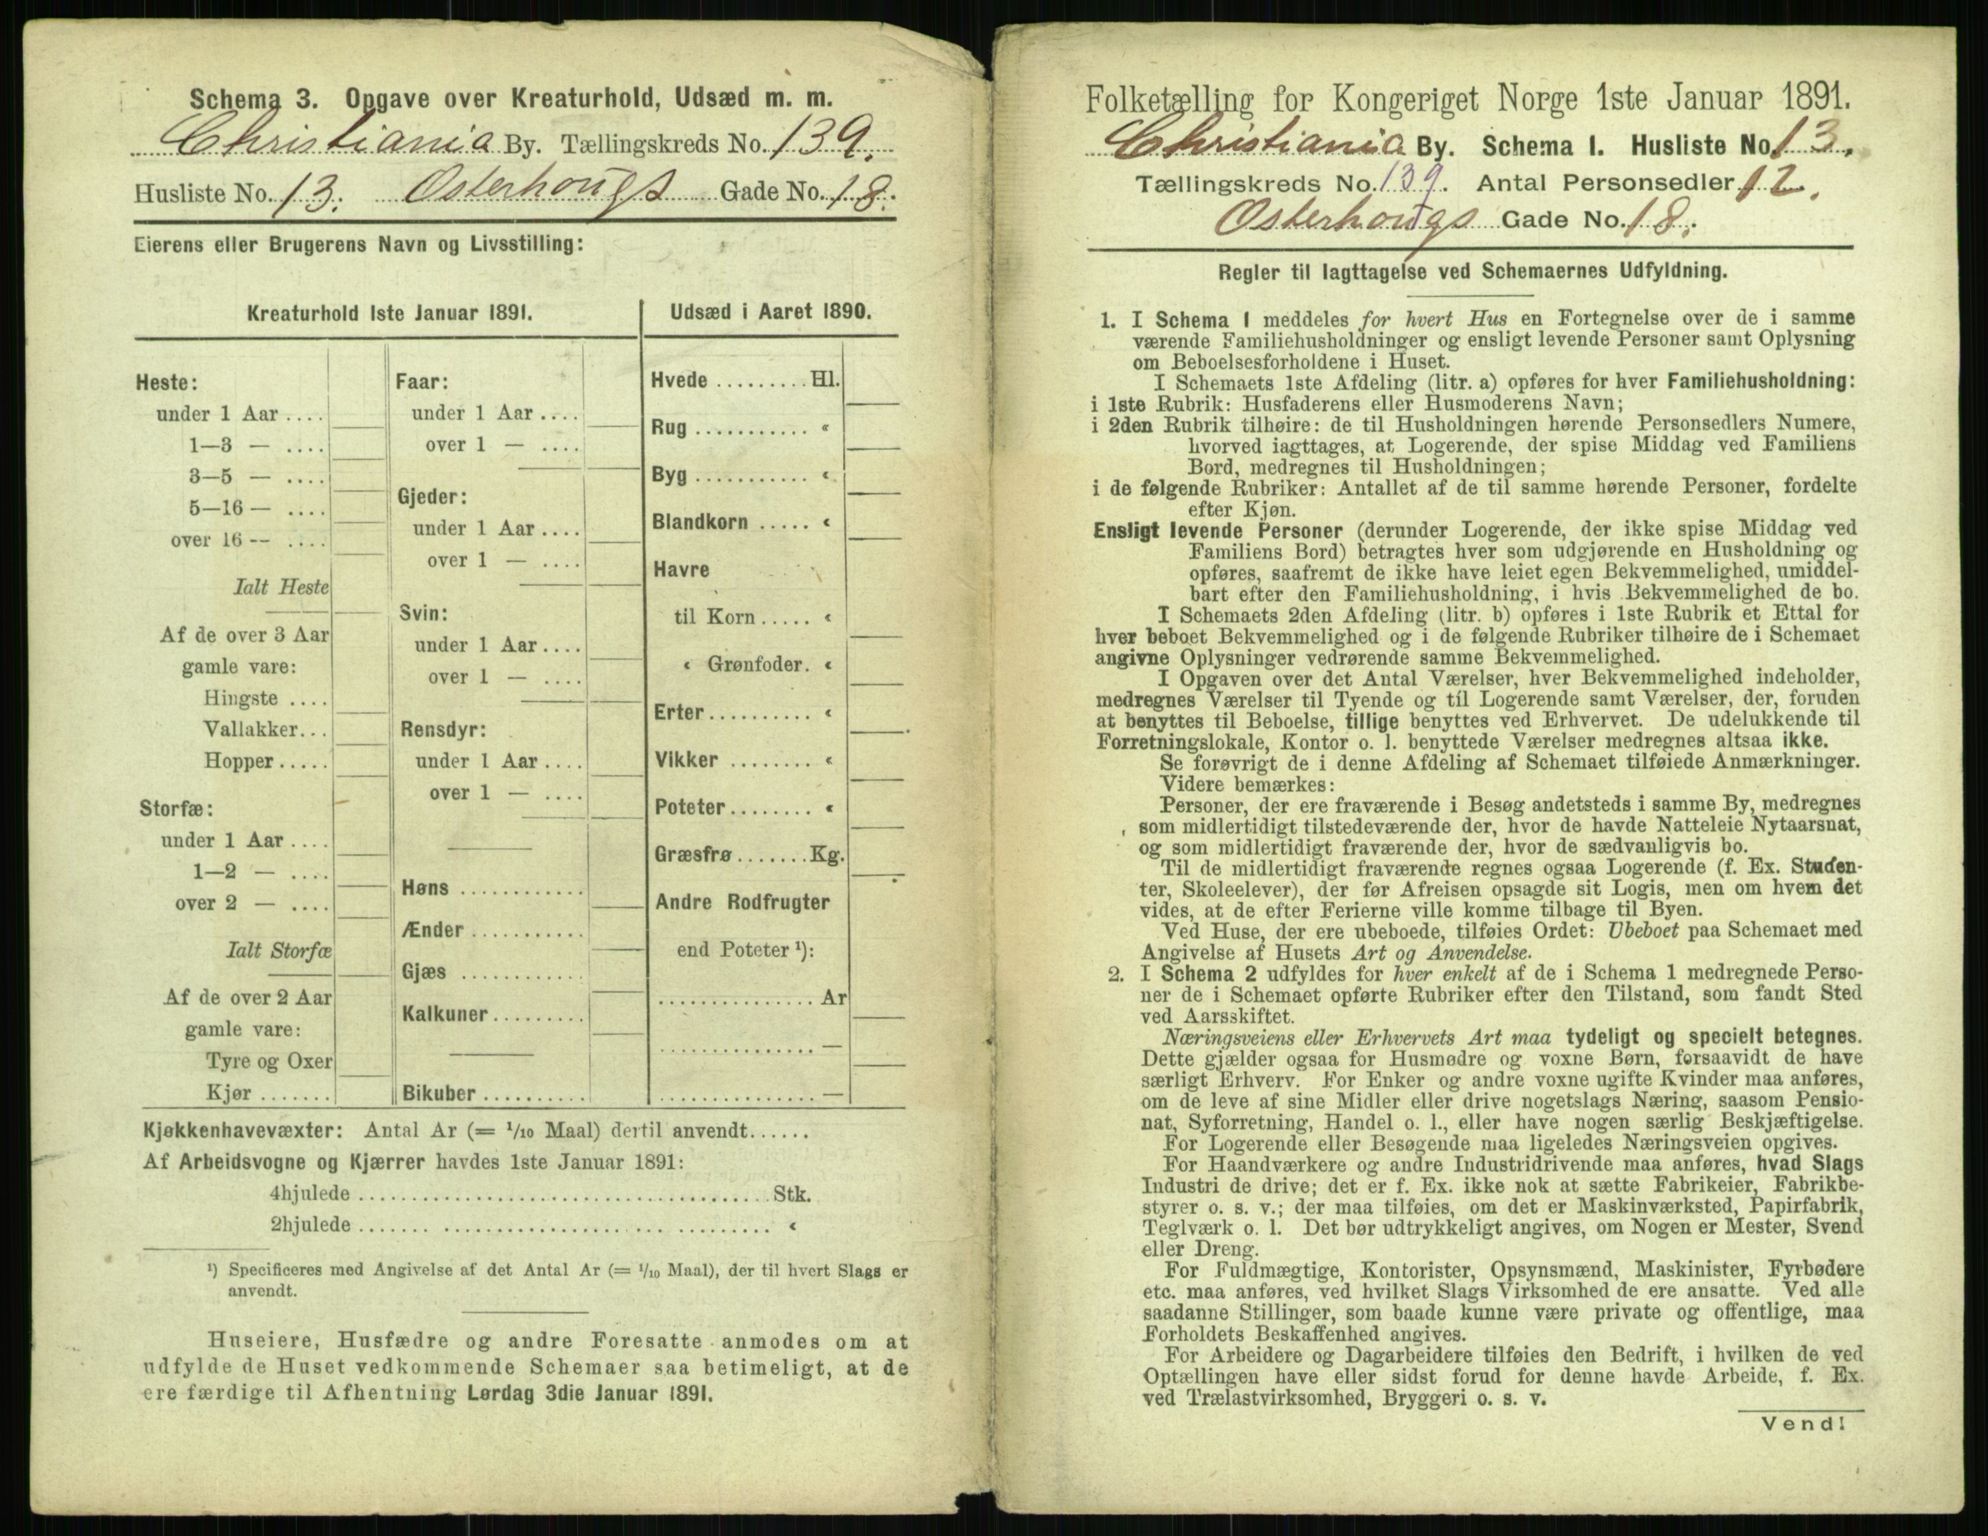 Schema 3. Opgave over Kreaturhold, Udsæd m. m.
Christiania By. Tællingskreds No. 139.
Husliste No. 13. Osterhougs Gade No. 18.
Eierens eller Brugerens Navn og Livsstilling:
Kreaturhold 1ste Januar 1891.
Heste:
under 1 Aar ....
1—3 — ....
3—5 — ....
5—16 — ....
over 16 -- ....
Ialt Heste
Af de over 3 Aar
gamle vare:
Hingste ....
Vallakker...
Hopper.....
Storfæ:
under 1 Aar ....
1—2 — ....
over 2 — ....
Ialt Storfæ
Af de over 2 Aar
gamle vare:
Tyre og Oxer
Kjør .......
Faar:
under 1 Aar ....
over 1 — ....
Gjeder:
under 1 Aar ....
over 1 — ....
Svin:
under 1 Aar ....
over 1 — ....
Rensdyr:
under 1 Aar ....
over 1 — ....
Høns ...........
Ænder ..........
Gjæs ...........
Kalkuner........
Bikuber .........
Udsæd i Aaret 1890.
Hvede .........Hl.
Rug ........... «
Byg ........... «
Blandkorn ..... «
Havre
til Korn ..... «
« Grønfoder. «
Erter.......... «
Vikker ........ «
Poteter........ «
Græsfrø.......Kg.
Andre Rodfrugter
end Poteter ¹):
............... Ar
............... —
............... —
Kjøkkenhavevæxter: Antal Ar (= 1/10 Maal) dertil anvendt......
Af Arbeidsvogne og Kjærrer havdes 1ste Januar 1891:
4hjulede ........................................Stk.
2hjulede ........................................ «
¹) Specificeres med Angivelse af det Antal Ar (= 1/10 Maal), der til hvert Slags er
anvendt.
Huseiere, Husfædre og andre Foresatte anmodes om at
udfylde de Huset vedkommende Schemaer saa betimeligt, at de
ere færdige til Afhentning Lørdag 3die Januar 1891.
Folketælling for Kongeriget Norge 1ste Januar 1891.
Christiania By. Schema 1. Husliste No. 13.
Tællingskreds No. 139. Antal Personsedler 12.
Osterhougs Gade No. 18.
Regler til Iagttagelse ved Schemaernes Udfyldning.
1. I Schema 1 meddeles for hvert Hus en Fortegnelse over de i samme
værende Familiehusholdninger og ensligt levende Personer samt Oplysning
om Beboelsesforholdene i Huset.
I Schemaets 1ste Afdeling (litr. a) opføres for hver Familiehusholdning:
i 1ste Rubrik: Husfaderens eller Husmoderens Navn;
i 2den Rubrik tilhøire: de til Husholdningen hørende Personsedlers Numere,
hvorved iagttages, at Logerende, der spise Middag ved Familiens
Bord, medregnes til Husholdningen;
i de følgende Rubriker: Antallet af de til samme hørende Personer, fordelte
efter Kjøn.
Ensligt levende Personer (derunder Logerende, der ikke spise Middag ved
Familiens Bord) betragtes hver som udgjørende en Husholdning og
opføres, saafremt de ikke have leiet egen Bekvemmelighed, umiddel-
bart efter den Familiehusholdning, i hvis Bekvemmelighed de bo.
I Schemaets 2den Afdeling (litr. b) opføres i 1ste Rubrik et Ettal for
hver beboet Bekvemmelighed og i de følgende Rubriker tilhøire de i Schemaet
angivne Oplysninger vedrørende samme Bekvemmelighed.
I Opgaven over det Antal Værelser, hver Bekvemmelighed indeholder,
medregnes Værelser til Tyende og til Logerende samt Værelser, der, foruden
at benyttes til Beboelse, tillige benyttes ved Erhvervet. De udelukkende til
Forretningslokale, Kontor o. l. benyttede Værelser medregnes altsaa ikke.
Se forøvrigt de i denne Afdeling af Schemaet tilføiede Anmærkninger.
Videre bemærkes:
Personer, der ere fraværende i Besøg andetsteds i samme By, medregnes
som midlertidigt tilstedeværende der, hvor de havde Natteleie Nytaarsnat,
og som midlertidigt fraværende der, hvor de sædvanligvis bo.
Til de midlertidigt fraværende regnes ogsaa Logerende (f. Ex. Studen-
ter, Skoleelever), der før Afreisen opsagde sit Logis, men om hvem det
vides, at de efter Ferierne ville komme tilbage til Byen.
Ved Huse, der ere ubeboede, tilføies Ordet: Ubeboet paa Schemaet med
Angivelse af Husets Art og Anvendelse.
2. I Schema 2 udfyldes for hver enkelt af de i Schema 1 medregnede Perso-
ner de i Schemaet opførte Rubriker efter den Tilstand, som fandt Sted
ved Aarsskiftet.
Næringsveiens eller Erhvervets Art maa tydeligt og specielt betegnes.
Dette gjælder ogsaa for Husmødre og voxne Børn, forsaavidt de have
særligt Erhverv. For Enker og andre voxne ugifte Kvinder maa anføres,
om de leve af sine Midler eller drive nogetslags Næring, saasom Pensio-
nat, Syforretning, Handel o. l., eller have nogen særlig Beskjæftigelse.
For Logerende eller Besøgende maa ligeledes Næringsveien opgives.
For Haandværkere og andre Industridrivende maa anføres, hvad Slags
Industri de drive; det er f. Ex. ikke nok at sætte Fabrikeier, Fabrikbe-
styrer o. s. v.; der maa tilføies, om det er Maskinværksted, Papirfabrik,
Teglværk o. l. Det bør udtrykkeligt angives, om Nogen er Mester, Svend
eller Dreng.
For Fuldmægtige, Kontorister, Opsynsmænd, Maskinister, Fyrbødere
etc. maa anføres, ved hvilket Slags Virksomhed de ere ansatte. Ved alle
saadanne Stillinger, som baade kunne være private og offentlige, maa
Forholdets Beskaffenhed angives.
For Arbeidere og Dagarbeidere tilføies den Bedrift, i hvilken de ved
Optællingen have eller sidst forud for denne havde Arbeide, f. Ex.
ved Trælastvirksomhed, Bryggeri o. s. v.
Vend!